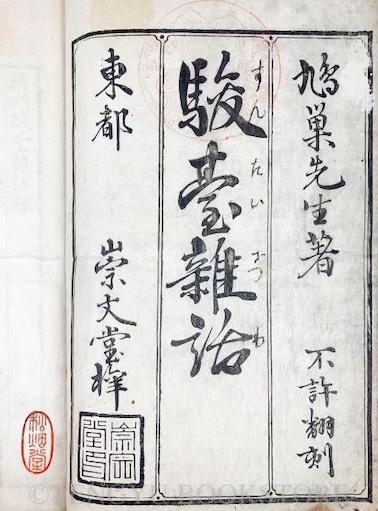 鳩巢先生著
不許翻刻
駿臺雜話
すんたいざつわ
東都
崇文堂梓
崇文堂印